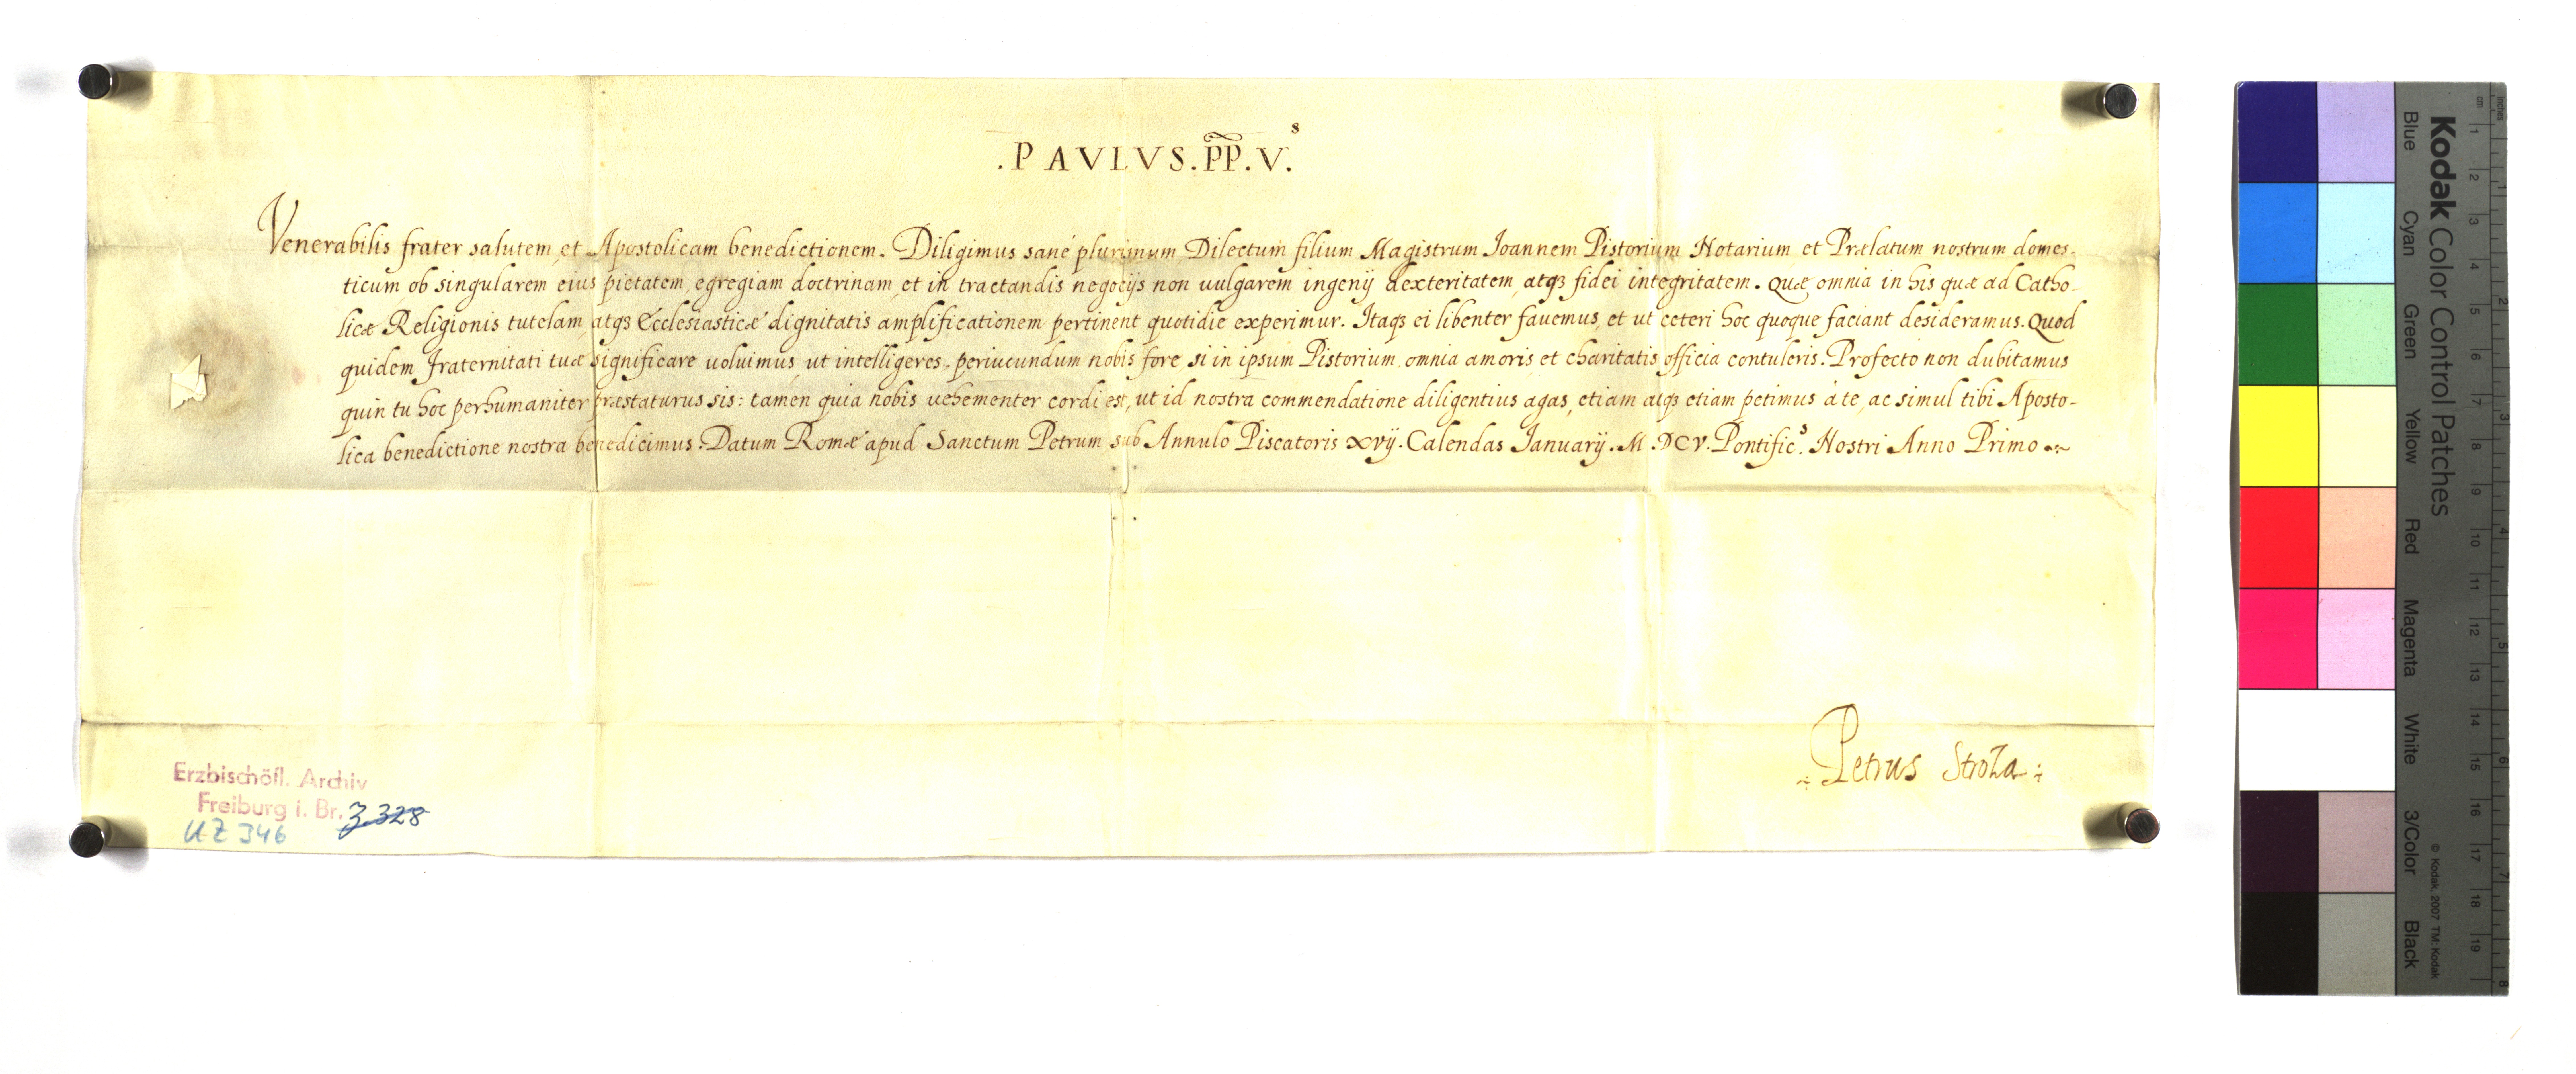 .PAVLVS.PP.V.s
Venerabilis frater salutem, et Apostolicam benedictionem. Diligimus sané plurimum Dilectum filium Magistrum Ioannem Pistorium Notarium et Prælatum nostrum domes-
ticum, ob singularem eius pietatem, egregiam doctrinam, et in tractandis negocijs non uulgarem ingenij dexteritatem, atqȝ fidei integritatem. Quæ omnia in his quæ ad Catho-
licæ Religionis tutelam, atqȝ Ecclesiasticæ dignitatis amplificationem pertinent quotidie experimur. Itaqȝ ei libenter fauemus, et ut ceteri hoc quoque faciant desideramus. Quod
quidem Fraternitati tuæ significare uoluimus, ut intelligeres, periucundum nobis fore si in ipsum Pistorium omnia amoris, et charitatis officia contuleris. Profecto non dubitamus
quin tu hoc perhumaniter præstaturus sis: tamen quia nobis uehementer cordi est, ut id nostra commendatione diligentius agas, etiam atqȝ etiam petimus à te, ac simul tibi Aposto-
lica benedictione nostra benedicimus. Datum Romæ apud Sanctum Petrum sub Annulo Piscatoris xvij. Calendas Ianuarij. M.DCV. Pontific.s Nostri Anno Primo
Petrus Stroza
Erzbischöfl. Archiv
Freiburg i. Br. Z 328
UZ 346
Kodak Color Control Patches
Blue Cyan Green Yellow Red Magenta White 3/Color Black
© Kodak, 2007 TM: Kodak
inches 1 2 3 4 5 6 7 8
cm 1 2 3 4 5 6 7 8 9 10 11 12 13 14 15 16 17 18 19